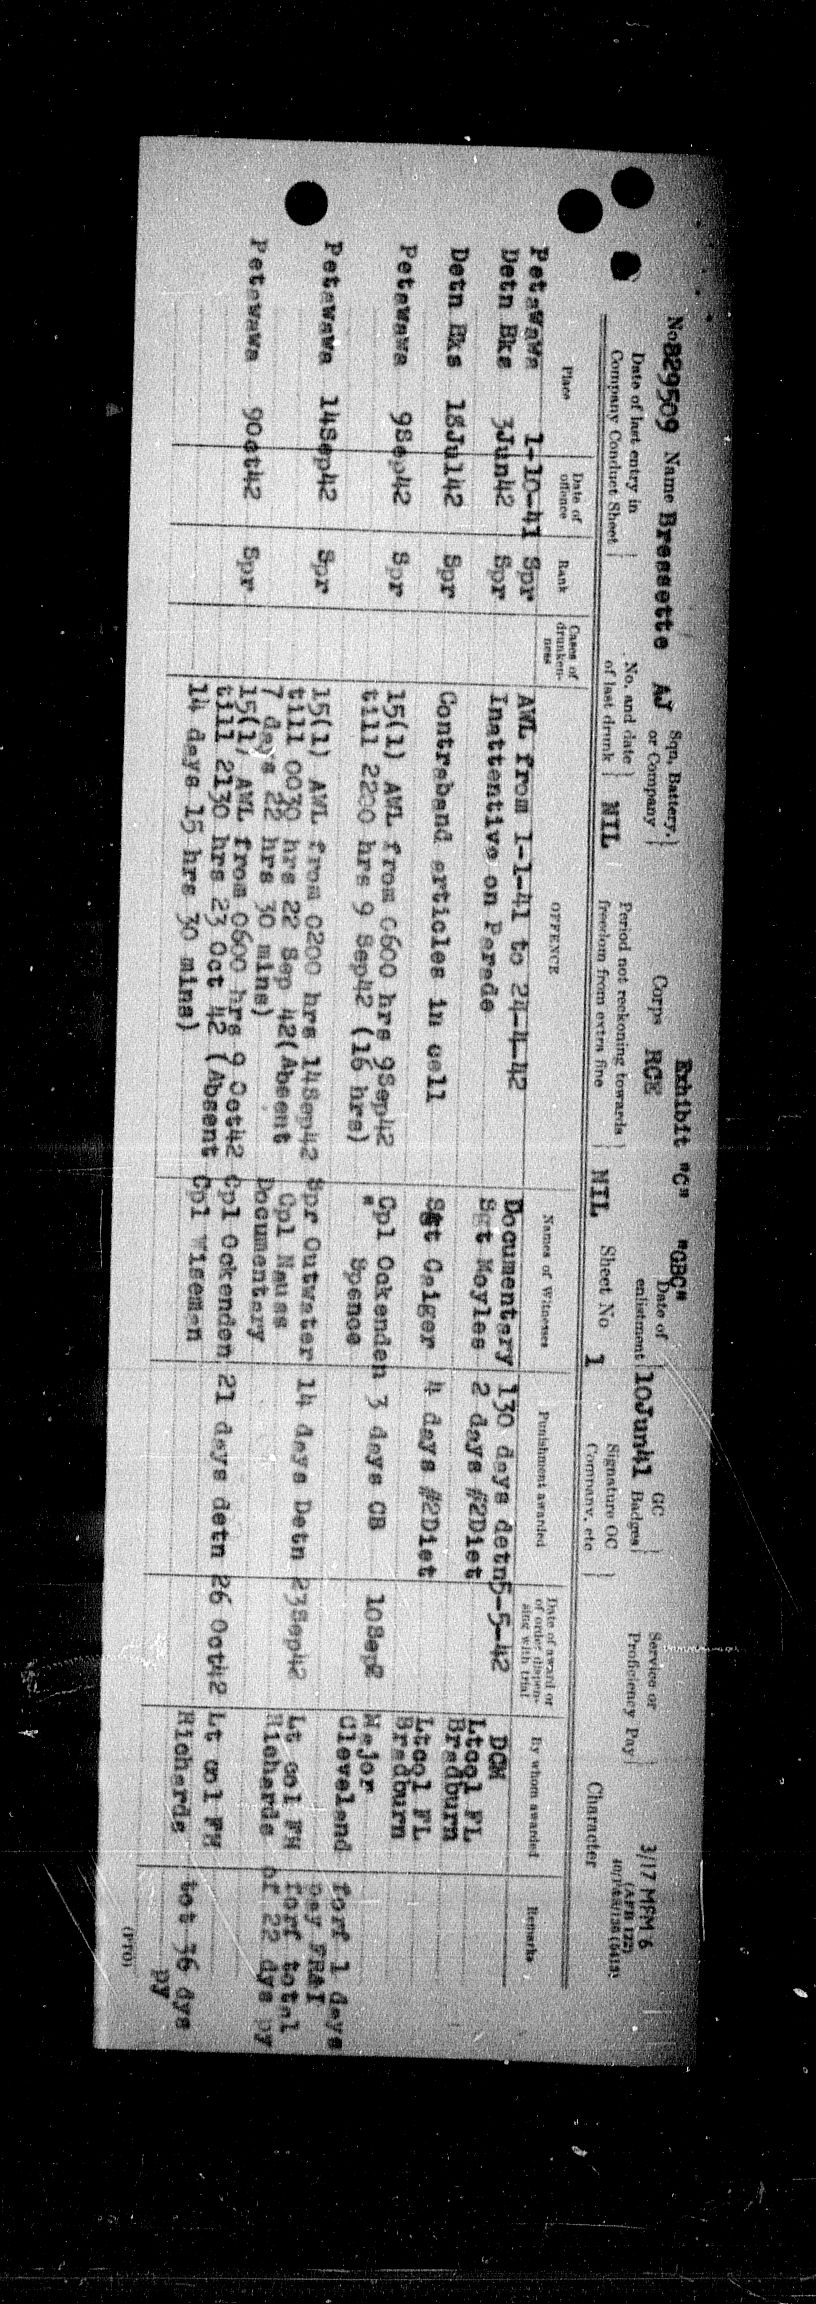 Exhibit "C" "GBC"
3/17 MFM 6
(AFB 122)
No B29509 Name Bressette AJ Sqn, Battery, or Company Corps RCE Date of enlistment 10Jun41 GC Badges Service or Proficiency Pay
Date of last entry in Company Conduct Sheet No. and date of last drunk NIL Period not reckoning towards freedom from extra fine NIL Sheet No 1 Signature OC Company, etc Character
Place Date of offence Rank Cases of drunkenness OFFENCE Names of Witnesses Punishment awarded Date of award or of order dispensing with trial By whom awarded Remarks
Petawawa 1-10-41 Spr AWL from 1-1-41 to 24-4-42 Documentary 130 days detn 5-5-42 DCM
Detn Bks 3Jun42 Spr Inattentive on Parade Sgt Moyles 2 days #2Diet Ltcol FL
Bradburn
Detn Bks 18Jul42 Spr Contraband articles in cell Sgt Geiger 4 days #2Diet Ltcol FL
Bradburn
Petawawa 9Sep42 Spr 15(1) AWL from 0600 hrs 9Sep42 Cpl Ockenden 3 days CB 10Sep2 Major
till 2200 hrs 9 Sep42 (16 hrs) " Spence Cleveland forf 1 days
pay FR&I
Petawawa 14Sep42 Spr 15(1) AWL from 0200 hrs 14Sep42 Spr Outwater 14 days Detn 23Sep42 Lt col FH forf total
till 0030 hrs 22 Sep 42(Absent Cpl Neuss Richards of 22 dys py
7 days 22 hrs 30 mins) Documentary
Petawawa 9Oct42 Spr 15(1) AWL from 0600 hrs 9 Oct42 Cpl Ockenden 21 days detn 26 Oct42 Lt col FH
till 2130 hrs 23 Oct 42 (Absent Cpl Wiseman Richards tot 36 dys
14 days 15 hrs 30 mins) py
(PTO)